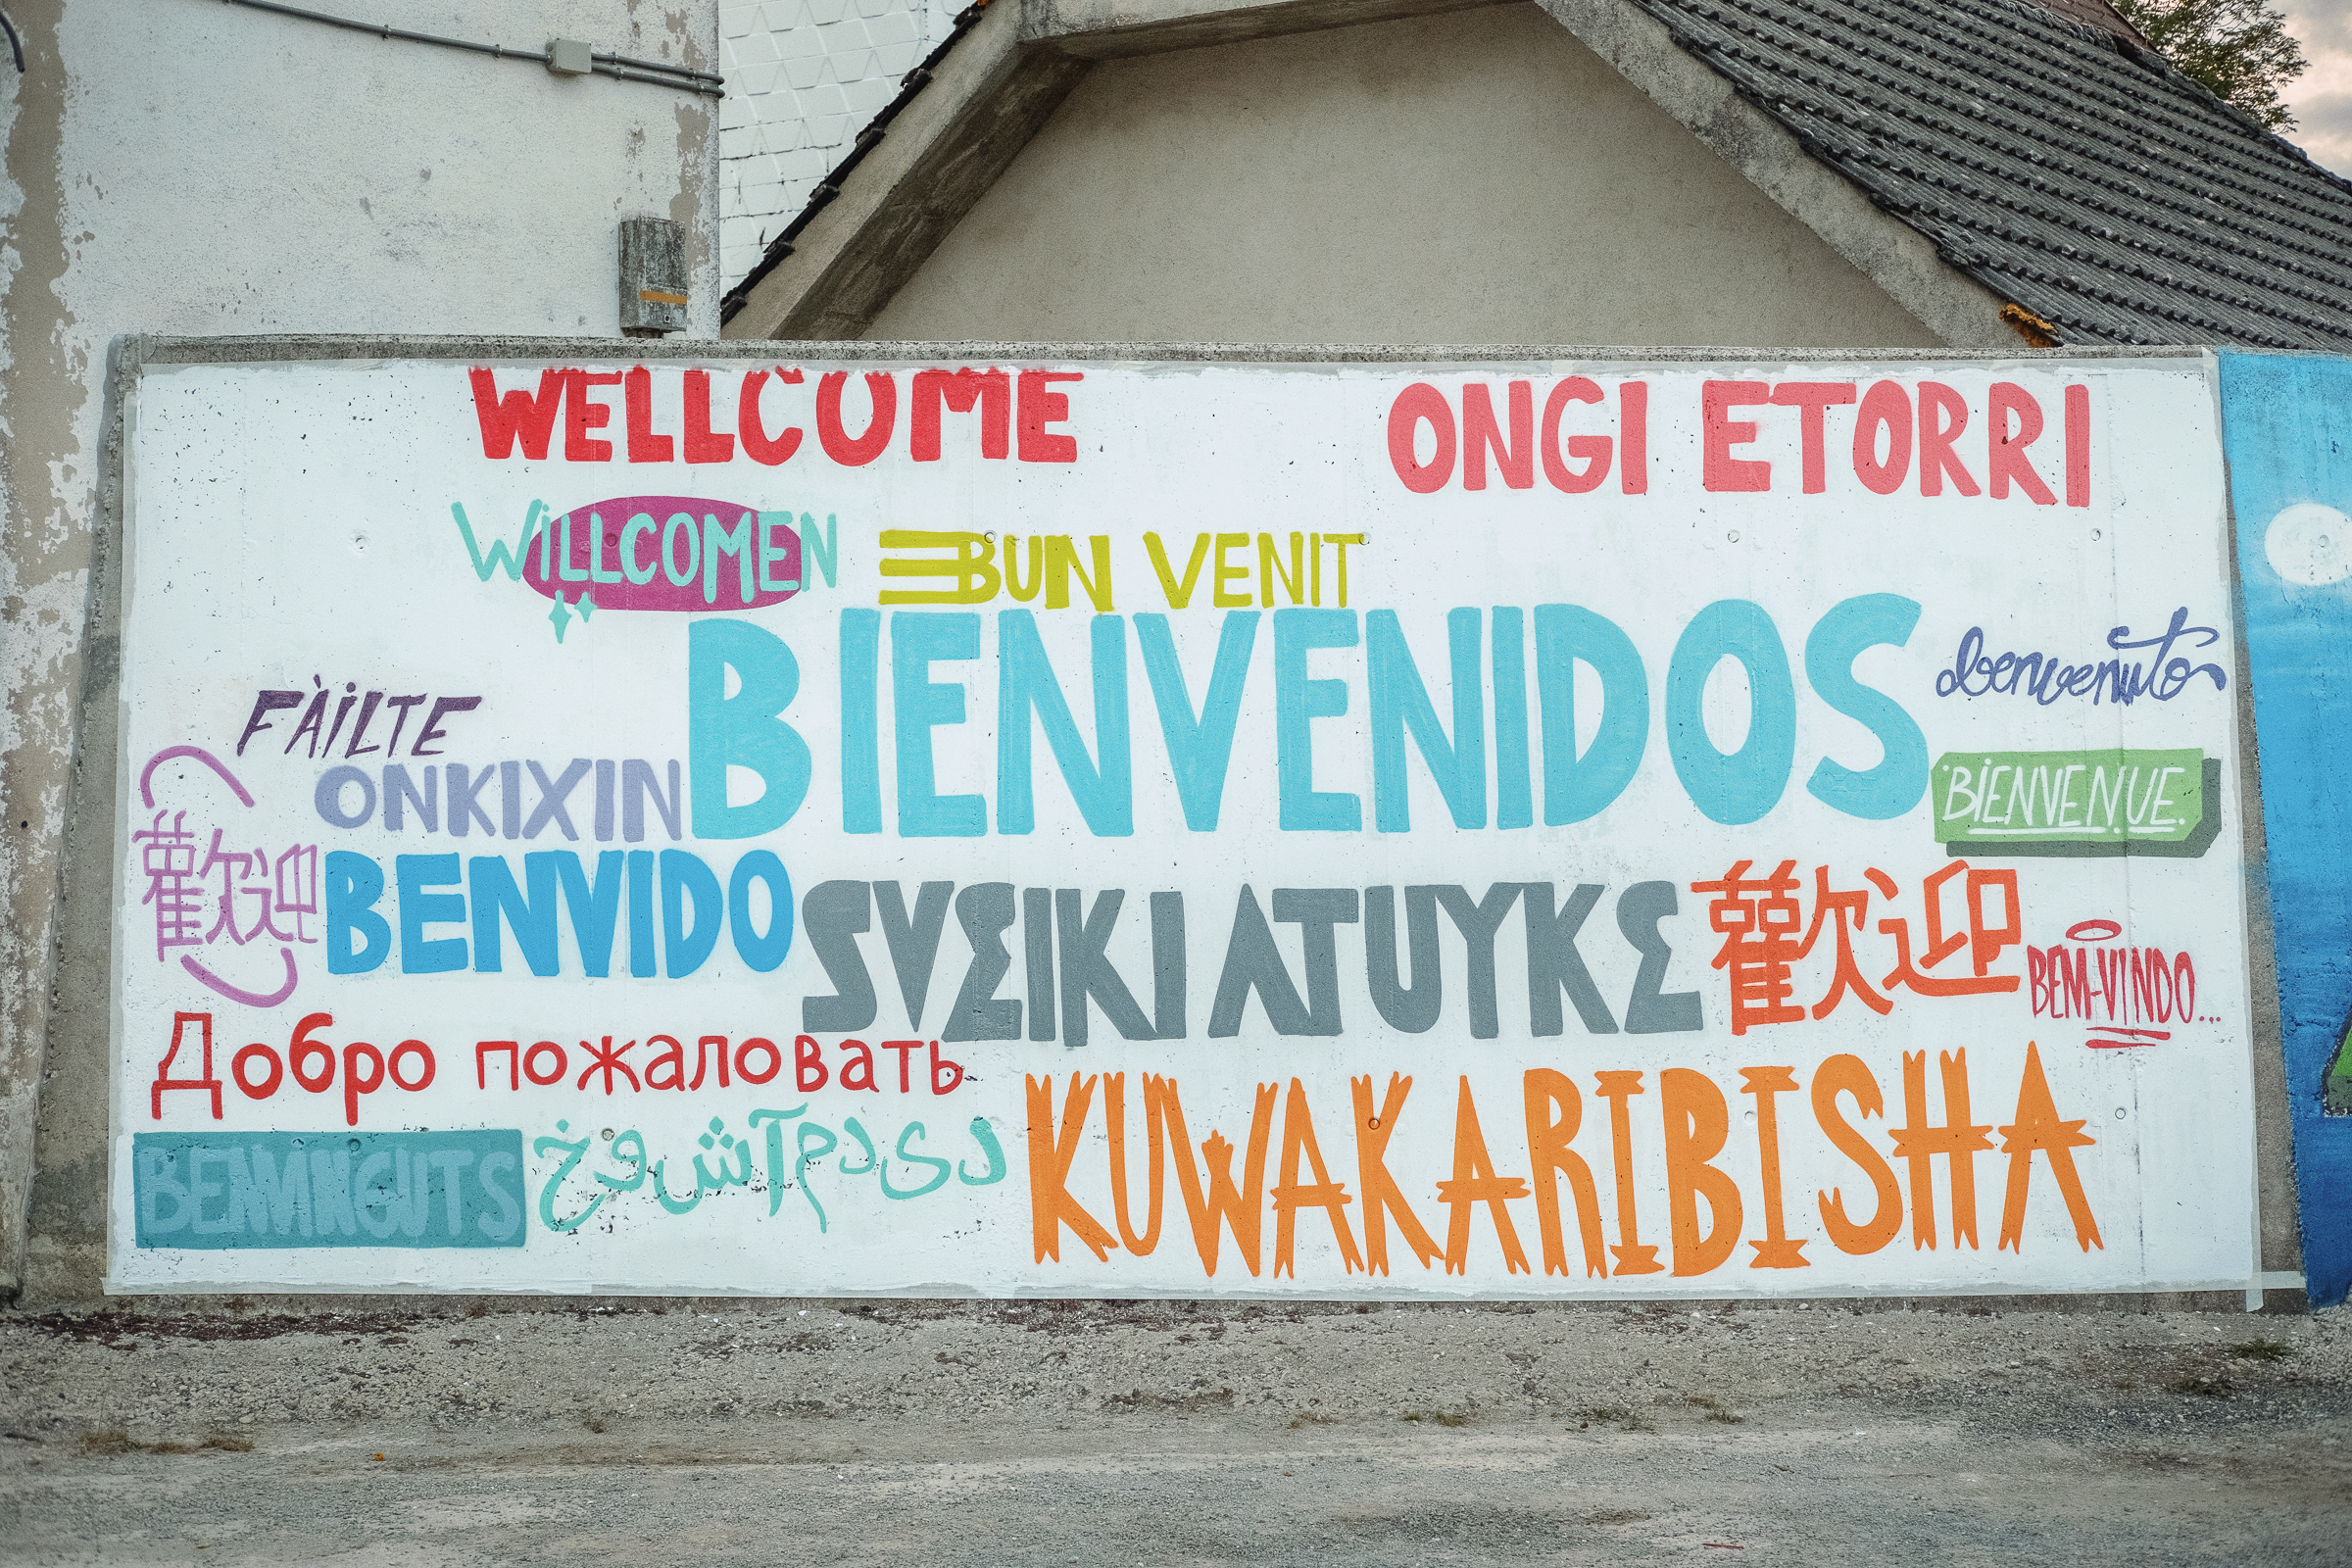 WELLCOME
ONGI ETORRI
WILLCOMEN
BUN VENIT
BIENVENIDOS
benvenuto
FÀILTE
ONKIXIN
BIENVENUE.
歡迎
BENVIDO
SVEIKI ATVYKĘ
歡迎
BEM-VINDO...
Добро пожаловать
BENVINGUTS
KUWAKARIBISHA